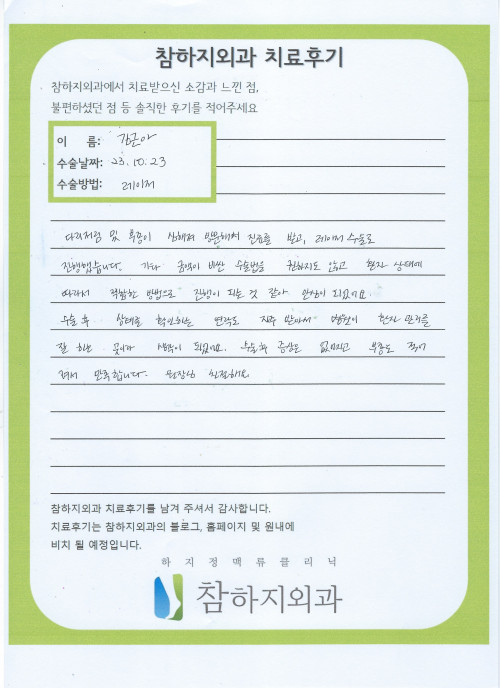 참하지외과 치료후기
참하지외과에서 치료받으신 소감과 느낀 점,
불편하셨던 점 등 솔직한 후기를 적어주세요
이 름: 김근아
수술날짜: 23.10.23
수술방법: 레이저
다리저림 및 통증이 심해져 방문해서 진료를 받고, 레이저 수술로
진행했습니다. 가격 금액이 비싼 수술법을 권하지도 않고 환자 상태에
따라서 적합한 방법으로 진행이 되는 것 같아 안심이 되었어요.
수술 후 상태를 확인하는 연락도 자주 받아서 병원이 환자 관리를
잘 하는 곳이라 생각이 되었어요. 수술후 증상은 없어지고 부종도 적어
져서 만족합니다. 원장님 친절해요
참하지외과 치료후기를 남겨 주셔서 감사합니다.
치료후기는 참하지외과의 블로그, 홈페이지 및 원내에
비치 될 예정입니다.
하지정맥류클리닉
참하지외과